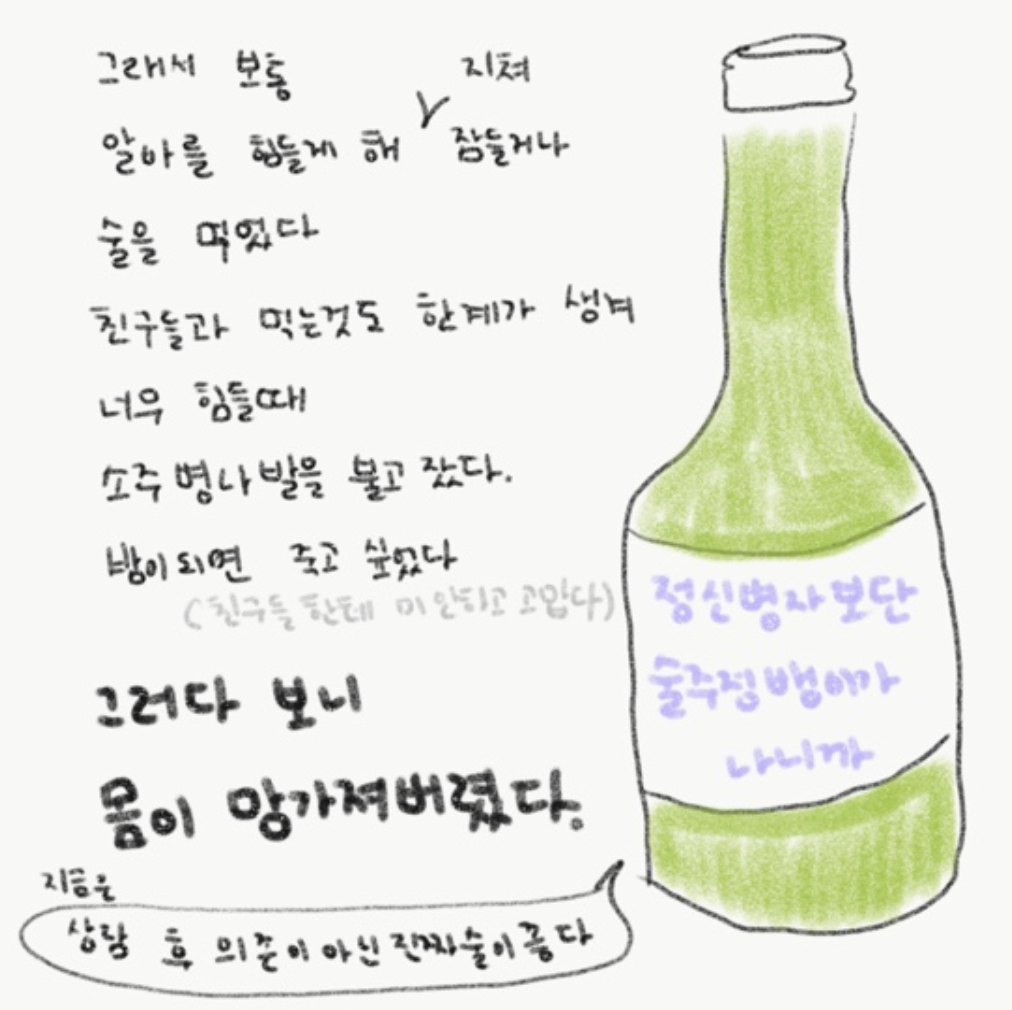 그래서 보통
알아를 힘들게 해 지쳐 잠들거나
술을 먹었다
친구들과 먹는것도 한계가 생겨
너무 힘들때
소주 병나발을 불고 잤다.
밤이되면 죽고 싶었다
(친구들한테 미안하고 고맙다)
그러다 보니
몸이 망가져버렸다.
지금은
상담 후 의존이 아닌 진짜술이 좋다
정신병자보단
술주정뱅이가
나니까